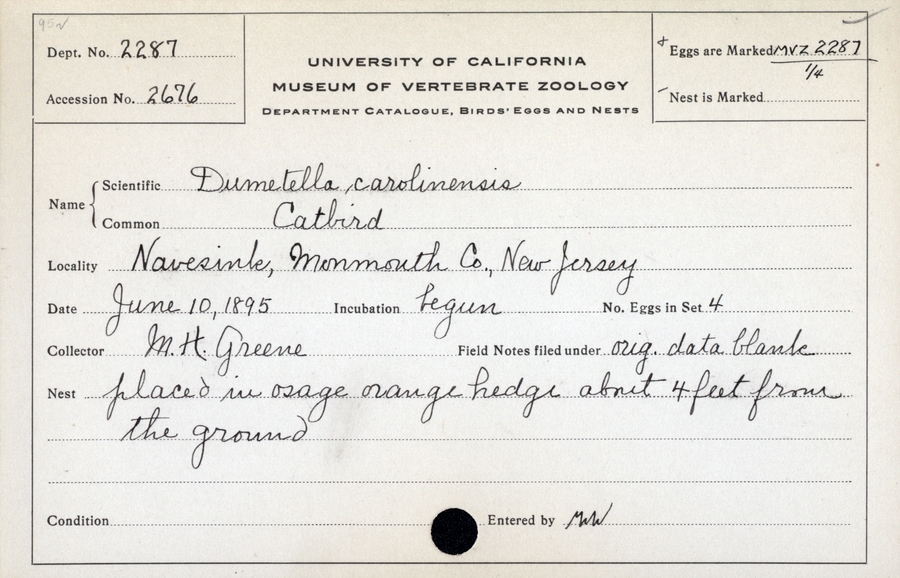 Dept. No. 2287
Accession No. 2676
UNIVERSITY OF CALIFORNIA
MUSEUM OF VERTEBRATE ZOOLOGY
DEPARTMENT CATALOGUE, BIRDS' EGGS AND NESTS
Eggs are Marked MVZ 2287
1/4
Nest is Marked
Name
Scientific Dumetella carolinensis
Common Catbird
Locality Navesink, Monmouth Co., New Jersey
Date June 10, 1895 Incubation begun No. Eggs in Set 4
Collector M. H. Greene Field Notes filed under orig. data blank
Nest placed in osage orange hedge about 4 feet from
the ground
Condition Entered by